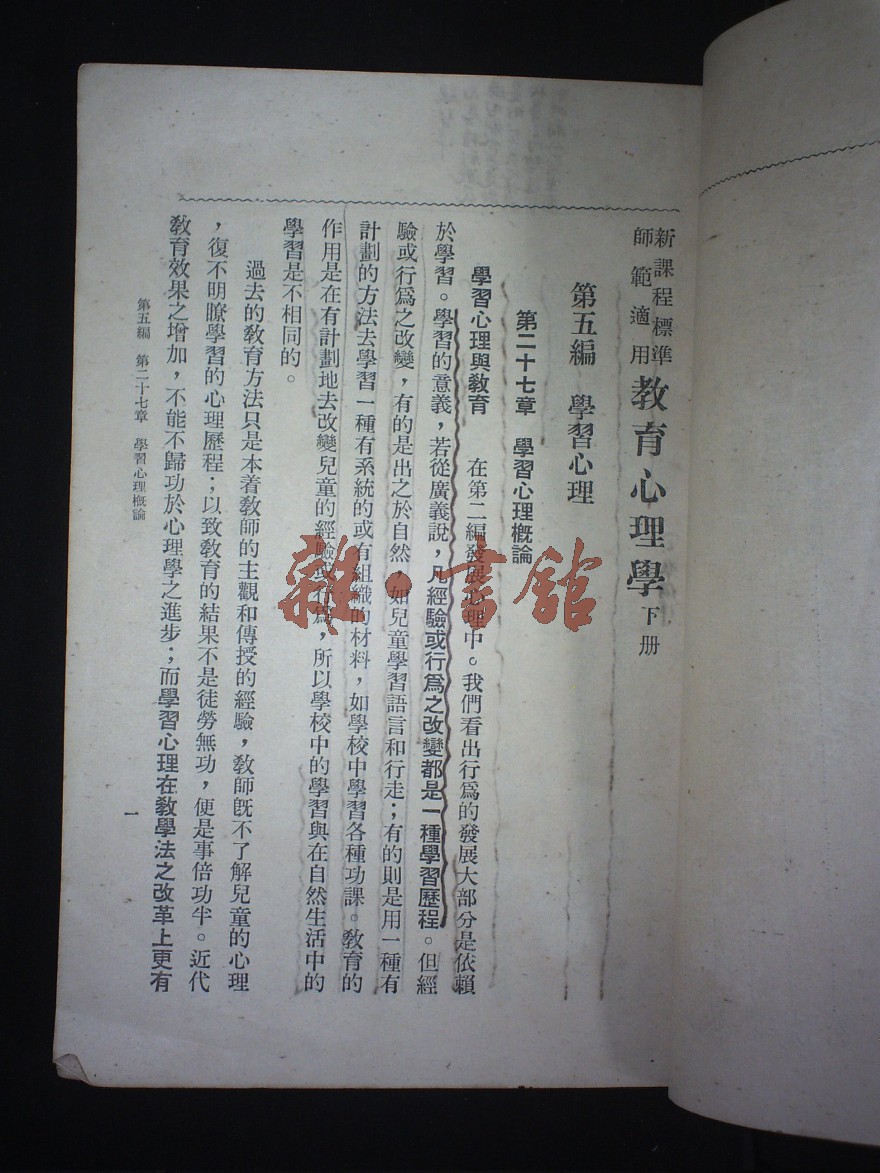 新課程標準
師範適用
教育心理學 下册
第五編 學習心理
第二十七章 學習心理概論
學習心理與教育 在第二編發展心理中。我們看出行爲的發展大部分是依賴
於學習。學習的意義，若從廣義說，凡經驗或行爲之改變都是一種學習歷程。但經
驗或行爲之改變，有的是出之於自然，如兒童學習語言和行走；有的則是用一種有
計劃的方法去學習一種有系統的或有組織的材料，如學校中學習各種功課。教育的
作用是在有計劃地去改變兒童的經驗或行爲，所以學校中的學習與在自然生活中的
學習是不相同的。
過去的教育方法只是本着教師的主觀和傳授的經驗，教師旣不了解兒童的心理
，復不明瞭學習的心理歷程；以致教育的結果不是徒勞無功，便是事倍功半。近代
教育效果之增加，不能不歸功於心理學之進步；而學習心理在教學法之改革上更有
第五編 第二十七章 學習心理概論
一
雜·書館